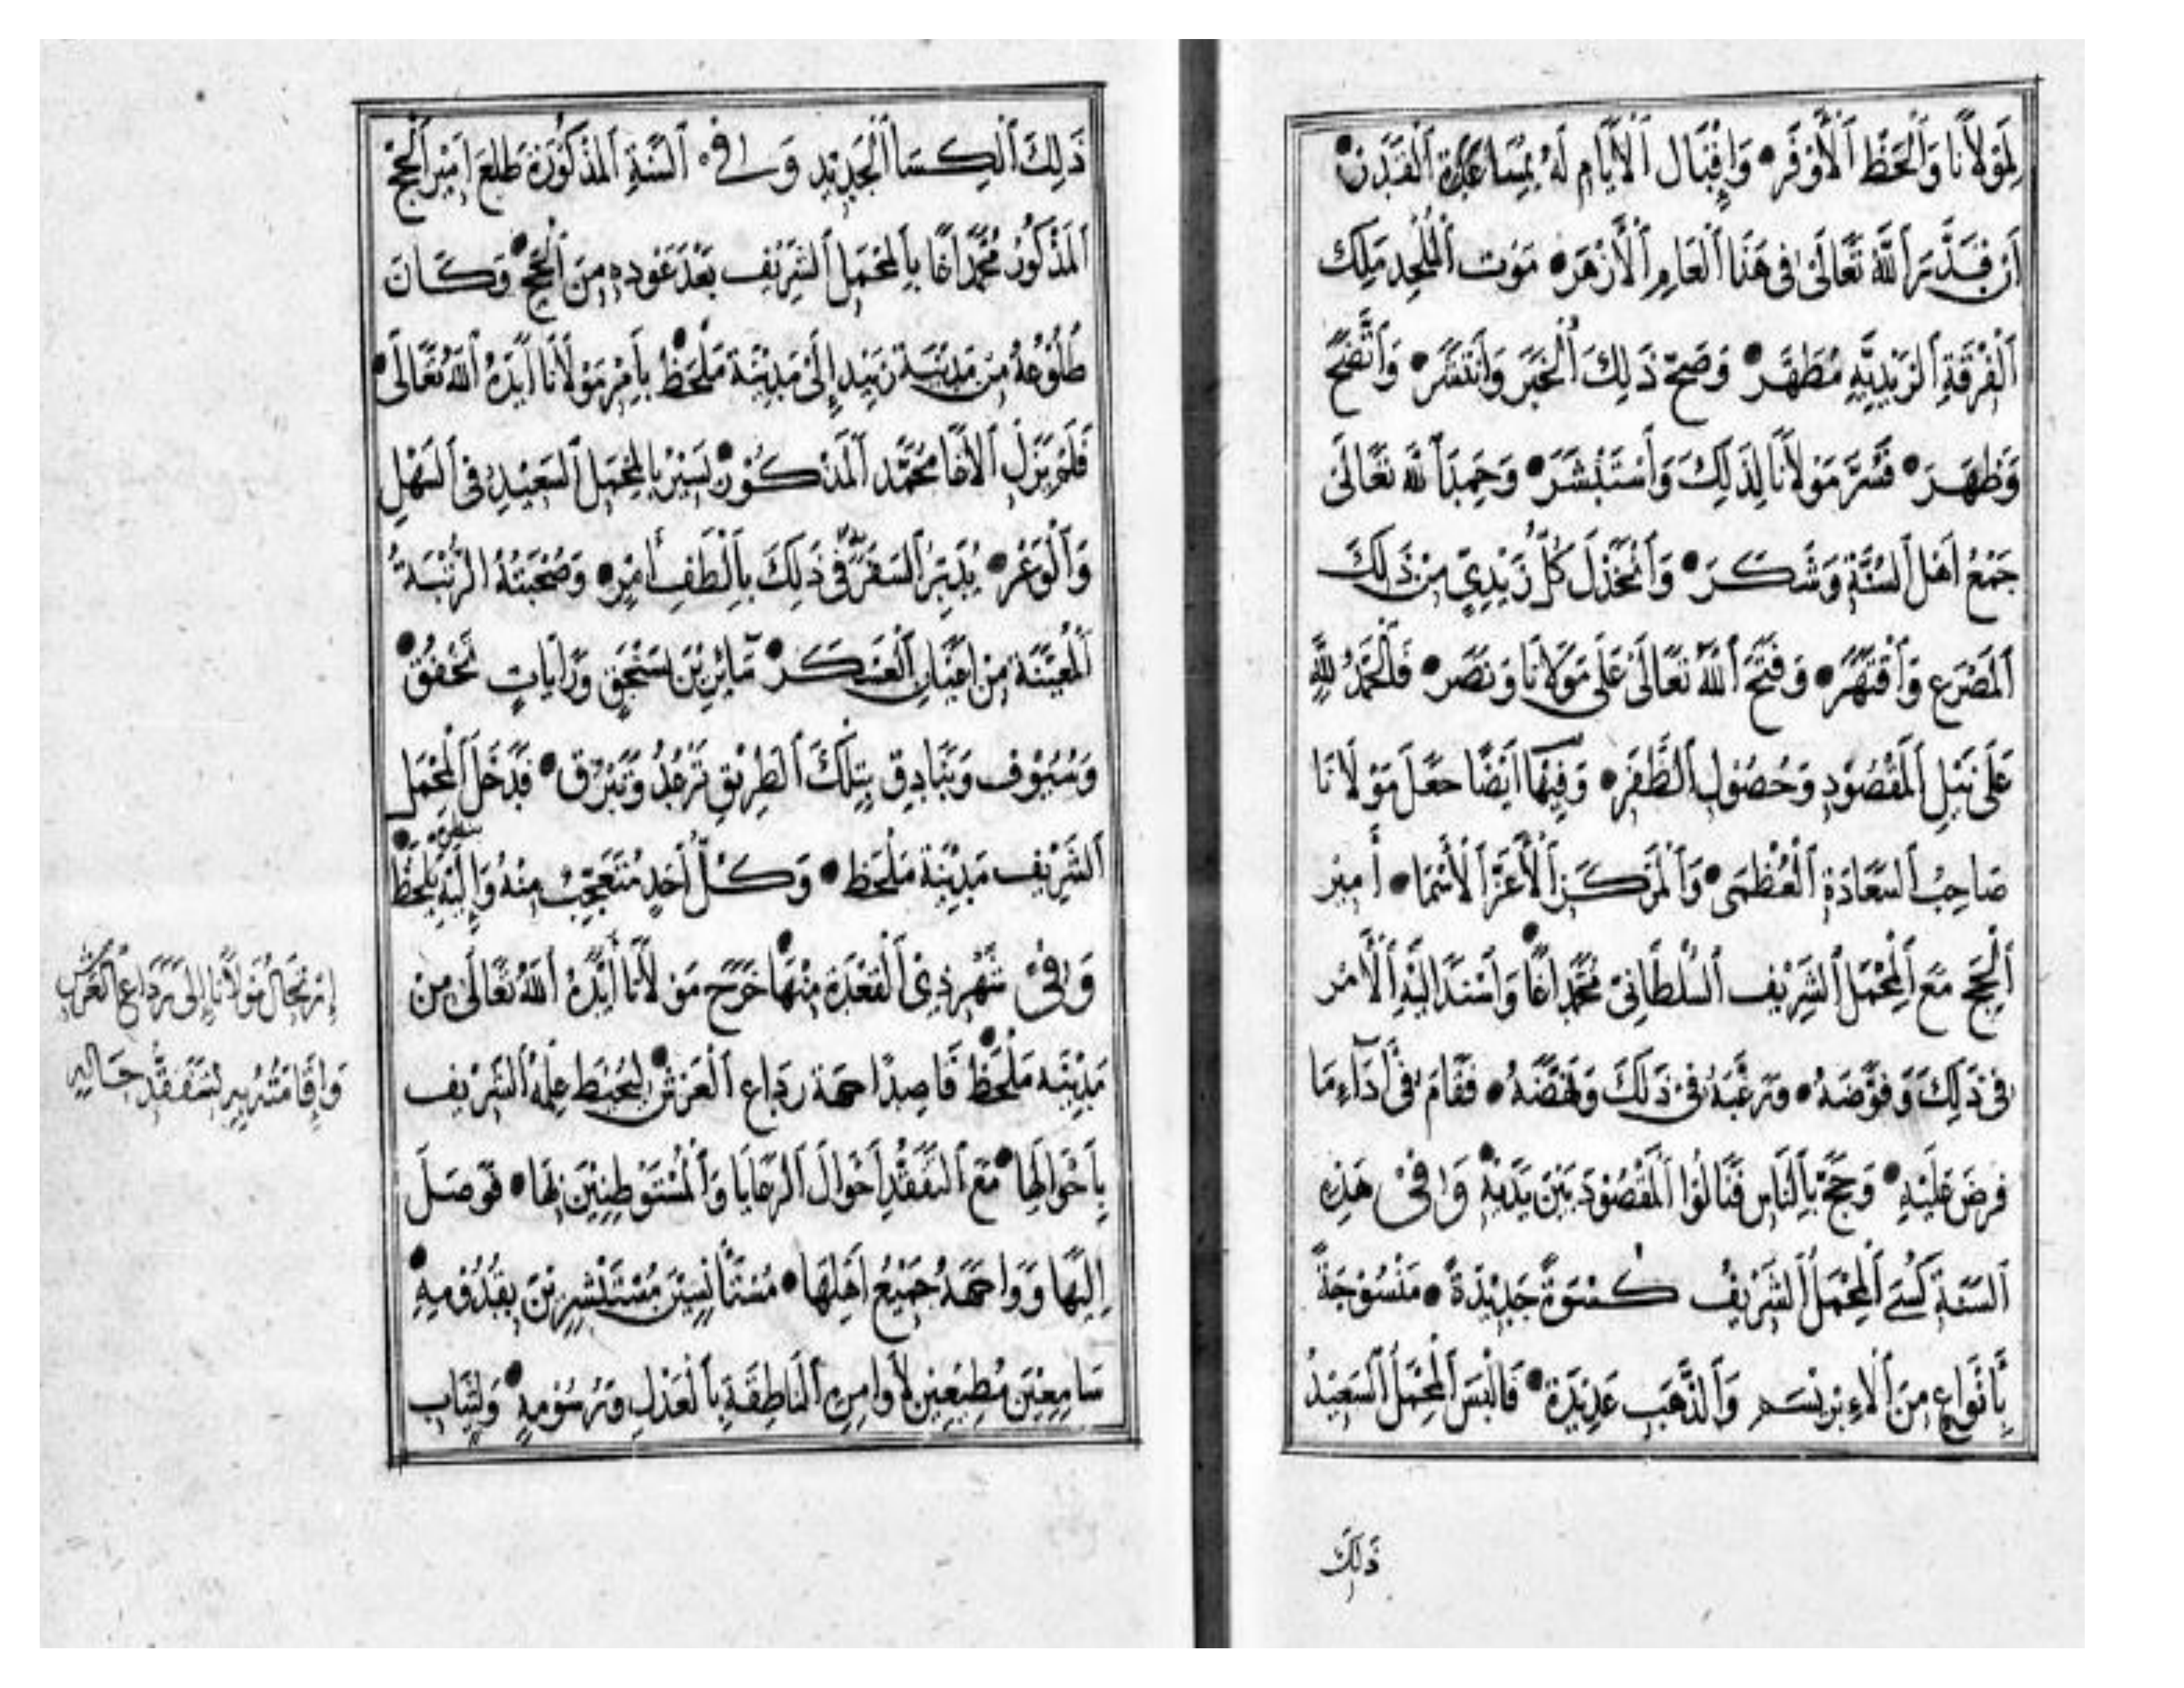 لِمَوْلَانَا وَالْحَظِّ الْأَوْفَرِ • وَإِقْبَالِ الْأَيَّامِ لَهُ بِمُسَاعَدَةِ الْقَدَرِ •
أَنْ قَدَّرَ اللهُ تَعَالَى فِي هَذَا الْعَامِ الْأَزْهَرِ • مَوْتَ الْمُلْحِدِ مَلِكِ
الْفِرْقَةِ الزَّيْدِيَّةِ مُطَهَّر • وَصَحَّ ذَلِكَ الْخَبَرُ وَانْتَشَرَ • وَاتَّضَحَ
وَظَهَرَ • فَسُرَّ مَوْلَانَا لِذَلِكَ وَاسْتَبْشَرَ • وَحَمِدَ اللهَ تَعَالَى
جَمْعُ أَهْلِ السُّنَّةِ وَشَكَرَ • وَانْخَذَلَ كُلُّ زَيْدِيٍّ مِنْ ذَلِكَ
الْمَصْرَعِ وَانْقَهَرَ • وَفَتَحَ اللهُ تَعَالَى عَلَى مَوْلَانَا وَنَصَرَ • فَالْحَمْدُ لِلَّهِ
عَلَى نَيْلِ الْمَقْصُودِ وَحُصُولِ الظَّفَرِ • وَفِيهَا أَيْضًا جَعَلَ مَوْلَانَا
صَاحِبُ السَّعَادَةِ الْعُظْمَى • وَالْمَرْكَزِ الْأَعَزِّ الْأَسْمَا • أَمِيرَ
الْحَجِّ مَعَ الْمَحْمَلِ الشَّرِيفِ السُّلْطَانِيِّ مُحَمَّد اَغَا • وَأَسْنَدَ إِلَيْهِ الْأَمْرَ
فِي ذَلِكَ وَفَوَّضَهُ • وَرَغَّبَهُ فِي ذَلِكَ وَنَهَّضَهُ • فَقَامَ فِي أَدَاءِ مَا
فُرِضَ عَلَيْهِ • وَحَجَّ بِالنَّاسِ فَنَالُوا الْمَقْصُودَ بَيْنَ يَدَيْهِ • وَفِي هَذِهِ
السَّنَةِ كُسِيَ الْمَحْمَلُ الشَّرِيفُ كِسْوَةً جَدِيدَةً • مَنْسُوجَةً
بِأَنْوَاعٍ مِنَ الْإِبْرِيسَمِ وَالذَّهَبِ عَدِيدَةً • فَأُلْبِسَ الْمَحْمَلُ السَّعِيدُ
ذَلِكَ
ذَلِكَ الْكِسَا الْجَدِيد وَفِي السَّنَةِ الْمَذْكُورَةِ طَلَعَ أَمِيرُ الْحَجِّ
الْمَذْكُورُ مُحَمَّد اَغَا بِالْمَحْمَلِ الشَّرِيفِ بَعْدَ عَوْدِهِ مِنَ الْحَجِّ • وَكَانَ
طُلُوعُهُ مِنْ مَدِينَةِ زَبِيدٍ إِلَى مَدِينَةِ مَلْحَظْ • بِأَمْرِ مَوْلَانَا أَيَّدَهُ اللهُ تَعَالَى •
فَلَمْ يَزَلِ الْأَغَا مُحَمَّد الْمَذْكُورُ • يَسِيرُ بِالْمَحْمَلِ السَّعِيدِ فِي السَّهْلِ
وَالْوَعْرِ • يُدَبِّرُ السَّفَرَ فِي ذَلِكَ بِأَلْطَفِ أَمْرٍ • وَصُحْبَتُهُ الرُّتْبَةُ
الْمُعَيَّنَةُ مِنْ أَعْيَانِ الْعَسْكَرِ • مَا بَيْنَ سَنْجَقٍ وَرَايَاتٍ تَخْفُقُ •
وَسُيُوفٍ وَبَنَادِقَ بِتِلْكَ الطَّرِيقِ تَرْعُدُ وَتَبْرُقُ • فَدَخَلَ الْمَحْمَلُ
الشَّرِيفُ مَدِينَةَ مَلْحَظ • وَكُلُّ أَحَدٍ مُتَعَجِّبٌ مِنْهُ وَإِلَيْهِ يَلْحَظُ •
وَفِي شَهْرِ ذِي الْقَعْدَةِ مِنْهَا • خَرَجَ مَوْلَانَا أَيَّدَهُ اللهُ تَعَالَى مِنْ
مَدِينَةِ مَلْحَظْ • قَاصِدًا جِهَةَ رَدَاعِ الْعَرْشِ • لِيُحِيطَ عِلْمُهُ الشَّرِيفُ
بِأَحْوَالِهَا • مَعَ التَّفَقُّدِ أَحْوَالَ الرَّعَايَا وَالْمُسْتَوْطِنِينَ بِهَا • فَوَصَلَ
إِلَيْهَا وَوَاجَهَهُ جَمِيعُ أَهْلِهَا • مُسْتَأْنِسِينَ مُسْتَبْشِرِينَ بِقُدُومِهِ •
سَامِعِينَ مُطِيعِينَ لِأَوَامِرِهِ النَّاطِقَةِ بِالْعَدْلِ وَرُسُومِهِ • وَلِبَابِ
اِرْتِحَالُ مَوْلَانَا إِلَى رَدَاعِ الْعَرْشِ
وَإِقَامَتُهُ بِهِ لِتَفَقُّدِ حَالِهِ